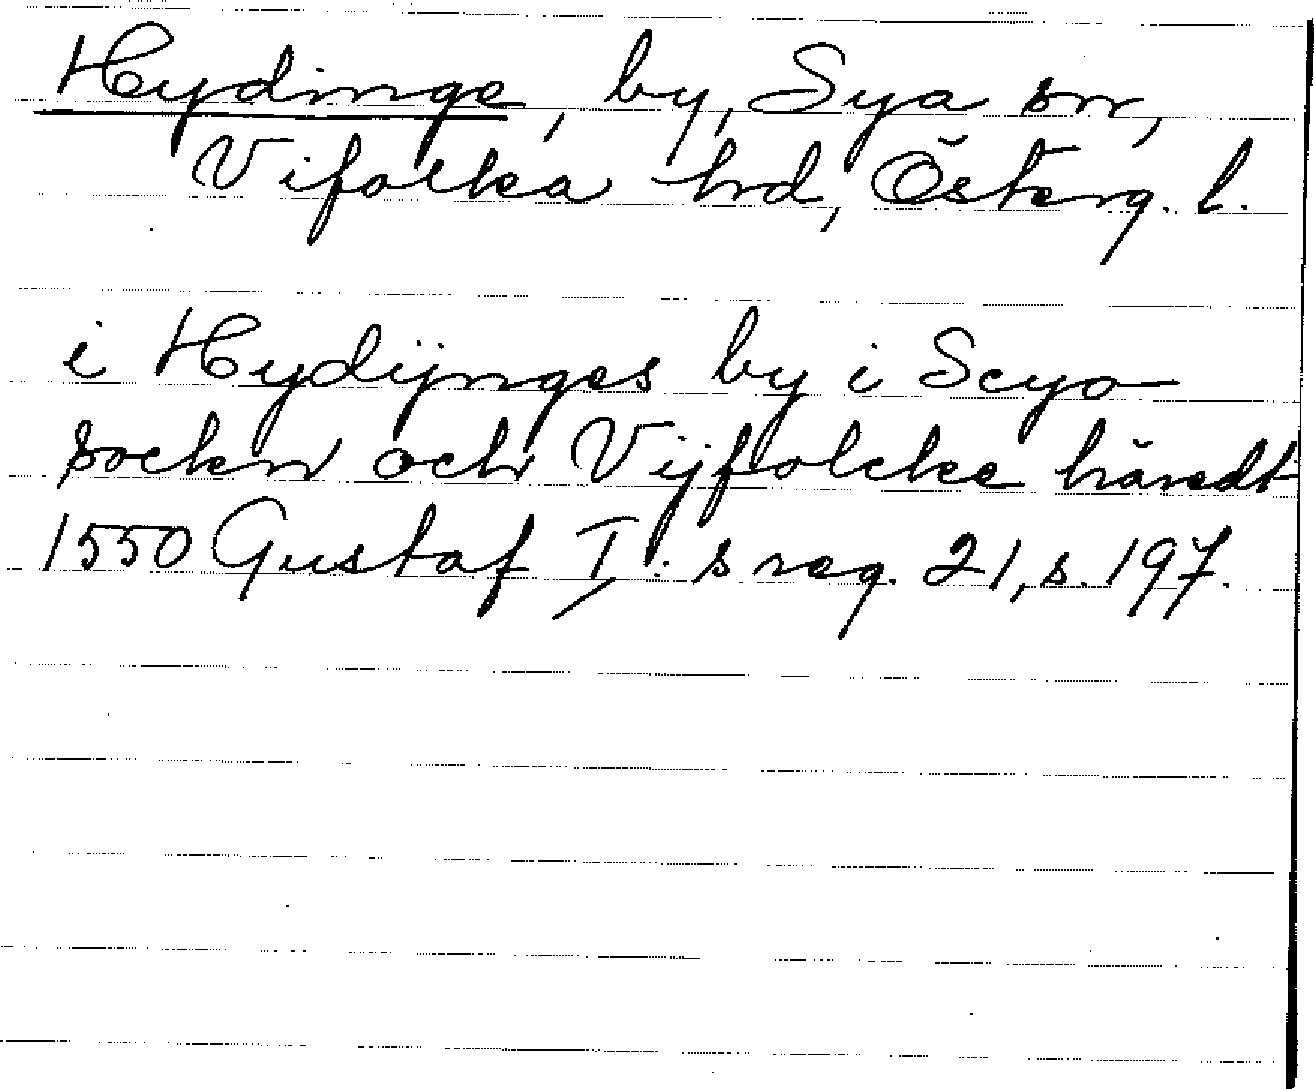 Hydinge, by, Sya sn,
Vifolka hd, Österg. l.
i Hydijnges by i Scyo
sockn och Vijfolcke häredt
1550 Gustaf I:s reg. 21, s. 197.